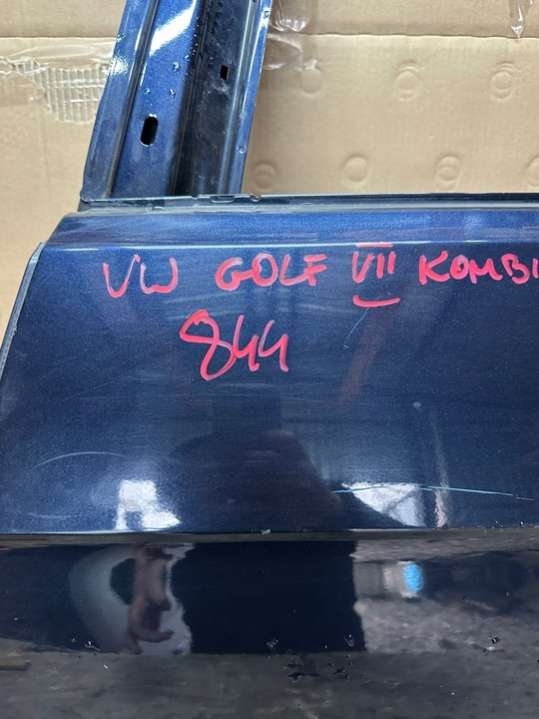 VW GOLF VII KOMBI
844